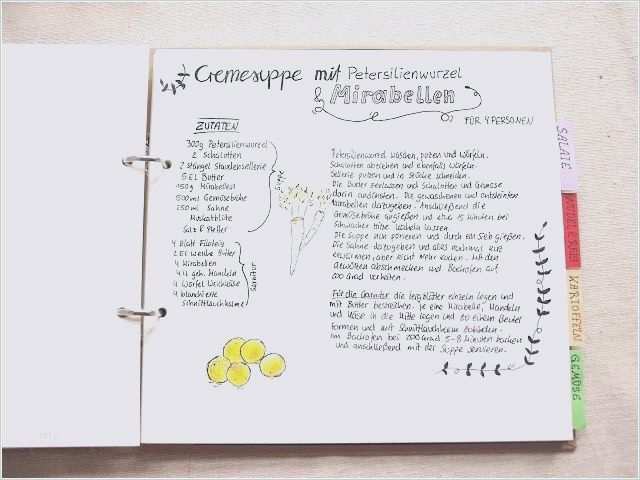 Cremesuppe mit Petersilienwurzel
& Mirabellen
FÜR 4 PERSONEN
ZUTATEN
300g Petersilienwurzel
2 Schalotten
2 Stängel Staudensellerie
5 EL Butter
150g Mirabellen
500ml Gemüsebrühe
250ml Sahne
Muskatblüte
Salz & Pfeffer
Suppe
4 Blatt Filoteig
2 El weiche Butter
4 Mirabellen
4 geh. Mandeln
4 Würfel
4 blanchierte
Schnittlauchhalme
Garnitur
Petersilienwurzel waschen, putzen und würfeln.
Schalotten abziehen und ebenfalls würfeln.
Sellerie putzen und in Stücke schneiden.
Die Butter zerlassen und Schalotten und Gemüse
darin andünsten. Die gewaschenen und entsteinten
Mirabellen dazugeben. Anschließend die
Gemüsebrühe angießen und etwa 15 Minuten bei
schwacher Hitze köcheln lassen.
Die Suppe fein pürieren und durch ein Sieb gießen.
Die Sahne dazugeben und alles nochmal kurz
erwärmen, aber nicht mehr kochen. Mit den
Gewürzen abschmecken und Backofen auf
200 Grad vorheizen.
Für die Garnitur die Teigblätter einzeln legen und
mit Butter bestreichen. Je eine Mirabelle, Mandeln
und Käse in die Mitte legen und zu einem Beutel
formen und mit Schnittlauchhalm zubinden.
Im Backofen bei 200 Grad 5-8 Minuten backen
und anschließend mit der Suppe servieren.
SALATE
NUDELN
KARTOFFELN
GEMÜSE